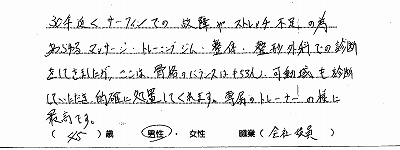 30年近くサーフィンでの故障やストレッチ不足の為
あらゆるマッサージ・トレーニングジム・整体・整形外科での診断
をしてきましたが、ここは骨格のバランスはもちろん、可動域も診断
していただき的確に処置してくれます。専属のトレーナーの様に
最高です。
(45)歳 男性・女性 職業(会社役員)